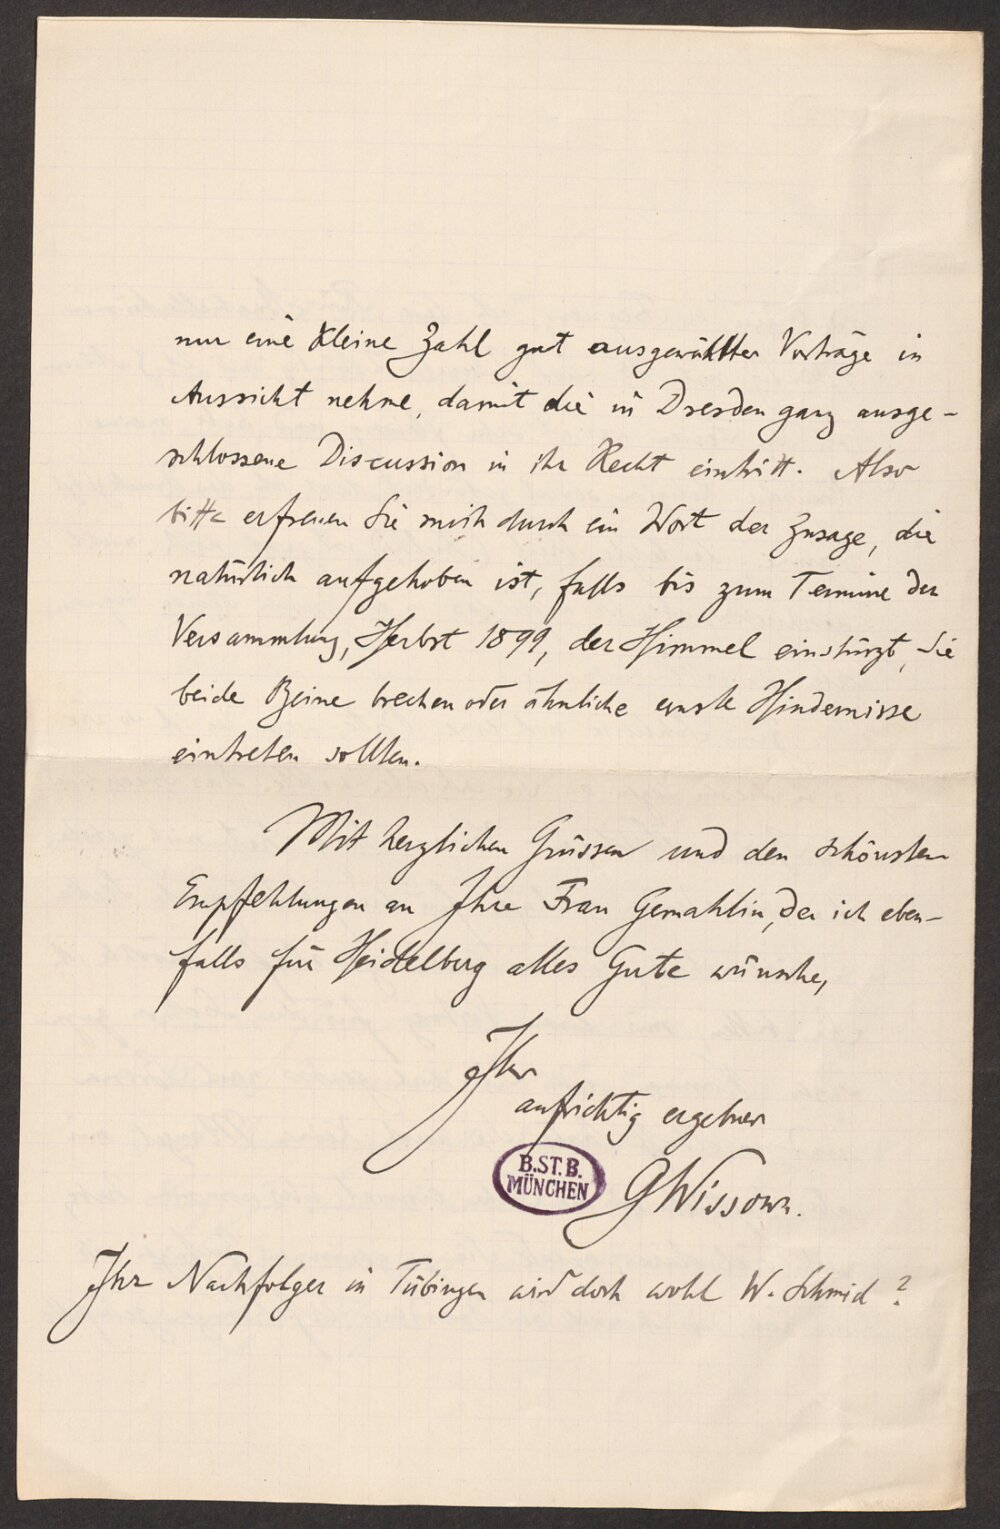 nur eine kleine Zahl gut ausgewählter Vorträge in
Aussicht nehme, damit die in Dresden ganz ausge-
schlossene Discussion in ihr Recht eintritt. Also
bitte erfreuen Sie mich durch ein Wort der Zusage, die
natürlich aufgehoben ist, falls bis zum Termine der
Versammlung, Herbst 1899, der Himmel einstürzt, Sie
beide Beine brechen oder ähnliche ernste Hindernisse
eintreten sollten.
Mit herzlichen Grüssen und den schönsten
Empfehlungen an Ihre Frau Gemahlin, der ich eben-
falls für Heidelberg alles Gute wünsche,
Ihr
aufrichtig ergebner
B.ST.B.
MÜNCHEN
GWissowa.
Ihr Nachfolger in Tübingen wird doch wohl W. Schmid?